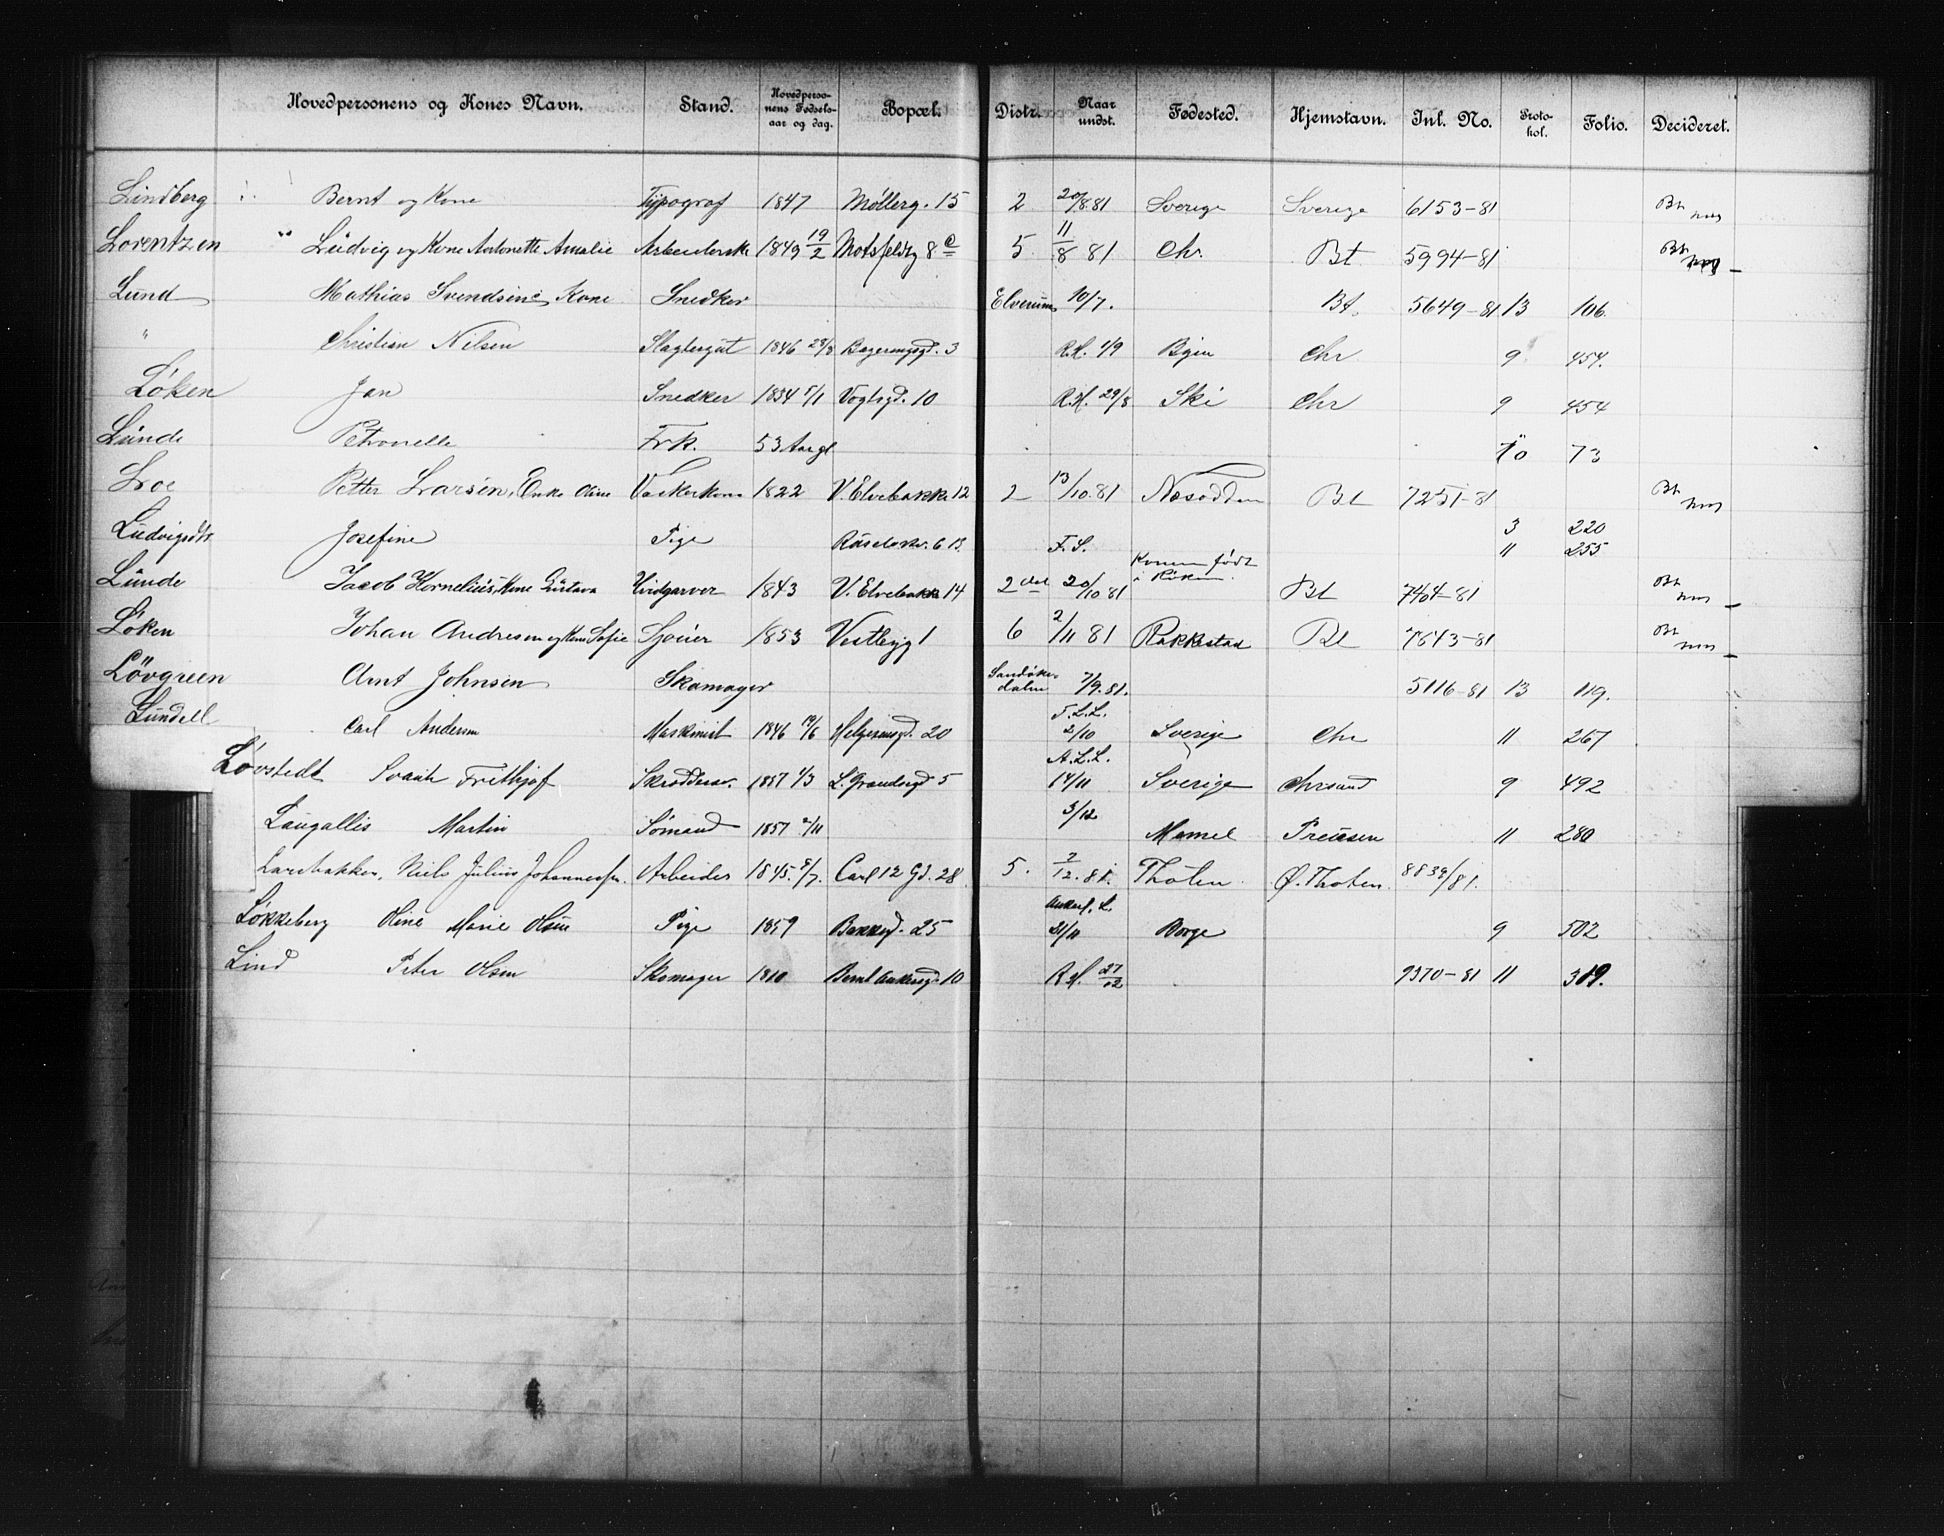 Hovedpersonens og Kones Navn. Stand. Hovedpersonens Fødselsaar og dag. Bopæl. Distr. Naar undst. Fødested. Hjemstavn. Inl. No. Protokol. Folio. Decideret.
Lindberg Bernt og Kone Typograf 1847 Møllerg. 15 2 20/8.81 Sverige Sverige 6153-81 Bt
Lorentzen Ludvig og Kone Antonette Amalie 1849 19/2 Motsfeldtg 8 c 5 11/8 81 Chr. Bt 5994-81 Bt
Lund Mathias Svendsen Kone Snedker Elverum 10/7. Bt. 5649-81 13 106.
" Christian Nilsen Slagtergut 1846 28/8 3 R.H. 1/9 Chr 9 454.
Løken Jan Snedker 1834 5/1 Vogtsgd. 10 R.H. 29/8 Ski Chr 9 454
Lunde Petronelle Frk. 53 Aar gl 10 73
Loe Petter Larsen, Enke Oline Vaskerkone 1822 V. Elvebakke 12 2 13/10.81 Næsodden Bt 7251-81 Bt
Ludvigsdtr Josefine Pige 6 B. F. S. 3 220
11 255
Lunde Jacob Kornelius, Kone Gustava Hvidgarver 1843 V. Elvebakke 14 2det 20/10 81 Konen født i Røken. Bt 7464-81 Bt
Løken Johan Andresen og Kone Sofie 1853 Vestbyg 1 6 2/11 81 Rakkestad Bt 7643-81 Bt
Lövgreen Arnt Johnsen Skomager Sandøkedalen 7/9.81. 5116-81 13 119.
Lundell Carl Andersen Maskinist 1846 19/6 Helgesensgd. 20 F.L.L. 2/10 Sverige Chr 11 267
Løvstedt Frithjof Skrædder. 1857 1/3 L. Grændsegd 5 A.L.L. 14/11 Sverige Chrsand 9 492
Laugallis Martin Sømand 1857 2/11 3/12 Memel Preusen 11 280
Larsbakken, Niels Julius Johannessen. Arbeider 1845. 8/7. Carl 12 Gd. 28 5. 2/12.81. Thoten Ø. Thoten 8839/81.
Løkkeberg Oline Marie Olsen Pige 1859 Bakkegd. 25 Ankerl. L. 21/11 Borge 9 502
Lind Peter Olsen Skomager 1810 Bernt Ankersgd. 10 R.H. 27/12 9370-81 11 319.